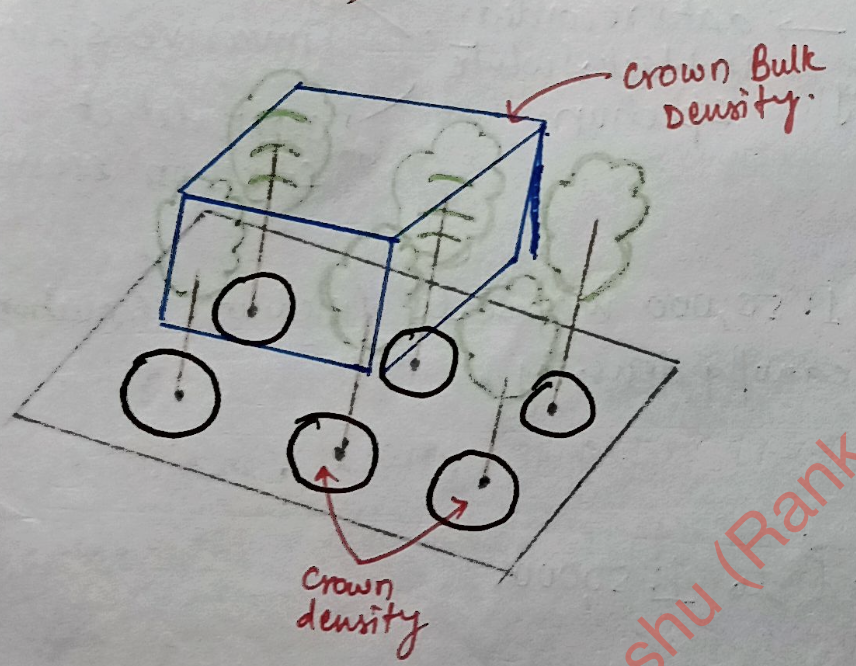 Crown Bulk
Density.
Crown
density
shu (Rank